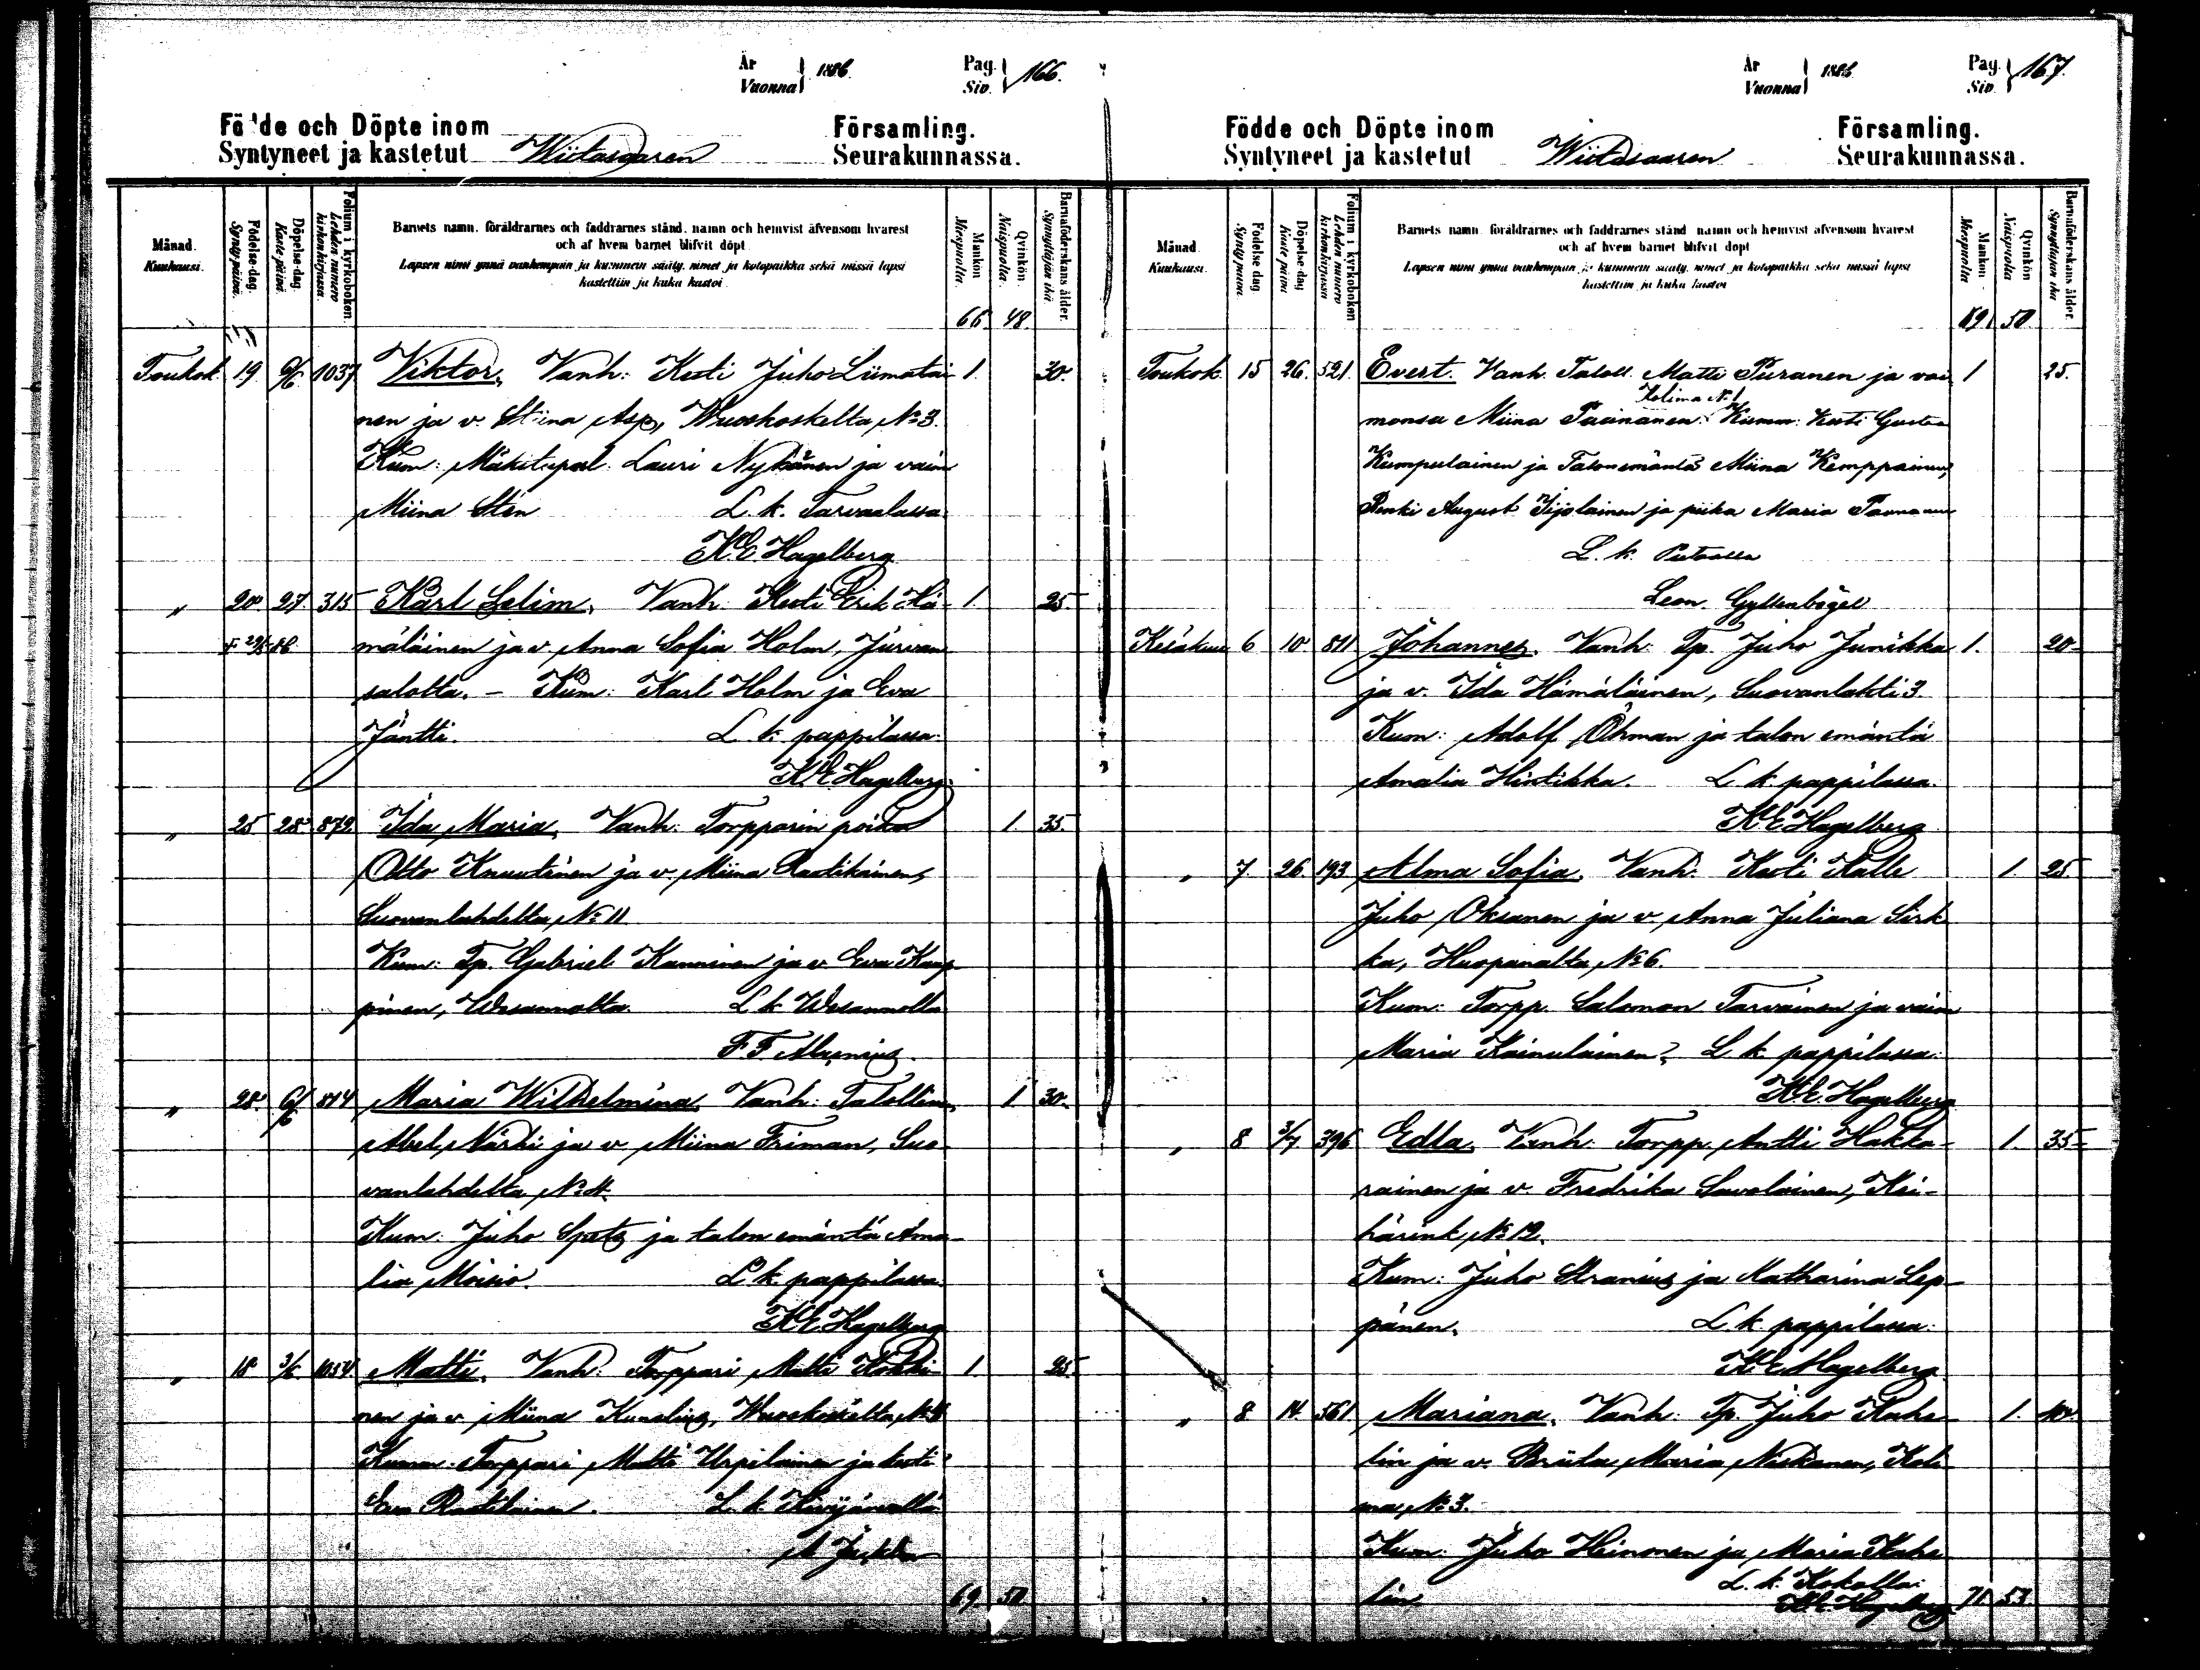 År
Vuonna } 1886.
Pag.
Siv. } 166.
Födde och Döpte inom
Syntyneet ja kastetut Wiitasaaren
Församling.
Seurakunnassa.
Månad.
Kuukausi.
Födelse-dag.
Synty-päivä.
Döpelse-dag.
Kaste-päivä.
Folium i kyrkoboken
Lehden numero kirkonkirjassa.
Barnets namn, föräldrarnes och faddrarnes stånd, namn och hemvist äfvensom hvarest
och af hvem barnet blifvit döpt.
Lapsen nimi ynnä vanhempain ja kummein sääty, nimet ja kotopaikka sekä missä lapsi
kastettiin ja kuka kastoi.
Mankön.
Miespuolia.
Qvinkön.
Naispuolia.
Barnaföderskans ålder.
Synnyttäjän ikä.
66. 48.
Toukok. 19 1037 Viktor, Vanh: Kesti Juho Liimatai- 1. 30.
nen ja v. Stiina Asp, Wuoskoskelta, No 3.
Kum: Mäkitupal. Lauri Nykänen ja vaim
Miina Stén L. k. Tarvaalassa.
K E Hagelberg
" 20 27. 315 Karl Selim, Vanh. Kesti Erik Hä- 1. 25.
mäläinen ja v. Anna Sofia Holm, Jurvan
salolta. – Kum: Karl Holm ja Eva
Jäntti. L. k. pappilassa.
K. E Hagelberg.
" 25 28 879. Ida Maria, Vanh: Torpparin poika 1. 35.
Otto Knuutinen ja v. Miina Rautikainen,
Suovanlahdelta, No 11
Kum: Tp. Gabriel Kanninen ja v. Eva Kaup-
pinen, Wesannolta. L. k. Wesannolla
F F Alcenius.
" 28. 6/6 814 Maria Wilhelmina, Vanh: Talollinen 1 30.
Abel Närhi ja v. Miina Friman, Suo-
vanlahdelta, No 4.
Kum: Juho Spets ja talon emäntä Ama-
lia Moisio. L. k. pappilassa.
K E Hagelberg
" 18 3/6 1054. Matti, Vanh: Torppari Matti Kokki- 1. 25.
nen ja v. Miina Kunelius, Wuoskoskelta, No 4
Kumm: Torppari Matti Urpilainen ja kesti
Eva Rautiainen. L. k. Kivijärvellä.
69. 50.
År
Vuonna } 1886.
Pag.
Siv. } 167.
Födde och Döpte inom
Syntyneet ja kastetut Wiitasaaren
Församling.
Seurakunnassa.
Månad.
Kuukausi.
Födelse-dag.
Synty-päivä.
Döpelse-dag.
Kaste-päivä.
Folium i kyrkoboken
Lehden numero kirkonkirjassa.
Barnets namn, föräldrarnes och faddrarnes stånd, namn och hemvist äfvensom hvarest
och af hvem barnet blifvit döpt.
Lapsen nimi ynnä vanhempain ja kummein sääty, nimet ja kotopaikka sekä missä lapsi
kastettiin ja kuka kastoi.
Mankön.
Miespuolia.
Qvinkön.
Naispuolia.
Barnaföderskans ålder.
Synnyttäjän ikä.
69. 50.
Toukok. 15 26. 521. Evert. Vanh. Taloll. Matti Puranen ja vai 1 25.
Kolima No 1
monsa Miina Paananen. Kumm: Kesti Gustaa
Kumpulainen ja Talonemäntä Miina Kemppainen,
Renki August Jijolainen ja piika Maria Paananen
L. k.
Leon. Gyllenbögel
Kesäkuu 6 10 811 Johannes. Vanh: Tp. Juho Junikka 1. 20
ja v. Ida Hämäläinen, Suovanlahti 3.
Kum: Adolf Öhman ja talon emäntä
Amalia Hintikka. L. k. pappilassa.
K E Hagelberg
" 7. 26. 193 Alma Sofia. Vanh. Kesti Kalle 1. 25
Juho Oksanen ja v. Anna Juliana Sirk
ka, Huopanalta, No 6.
Kum: Torpp. Salomon Tarvainen ja vaim
Maria Kainulainen. L. k. pappilassa.
K. E. Hagelberg
" 8 3/7 396 Edla. Vanh: Torpp. Antti Hakka- 1. 35
rainen ja v. Fredrika Savolainen, Kei-
härink. No 12.
Kum: Juho Stranius ja Katharina Lep-
pänen. L. k. pappilassa.
K. E Hagelberg
" 8 14. 561 Mariana, Vanh: Tp. Juho Kaha- 1. 40.
lin ja v. Briita Maria Niskanen, Koli-
ma, No 3.
Kum: Juho Heinonen ja Maria Kaha
lin L. k. Kokolla.
K. E. Hagelberg 71 53.